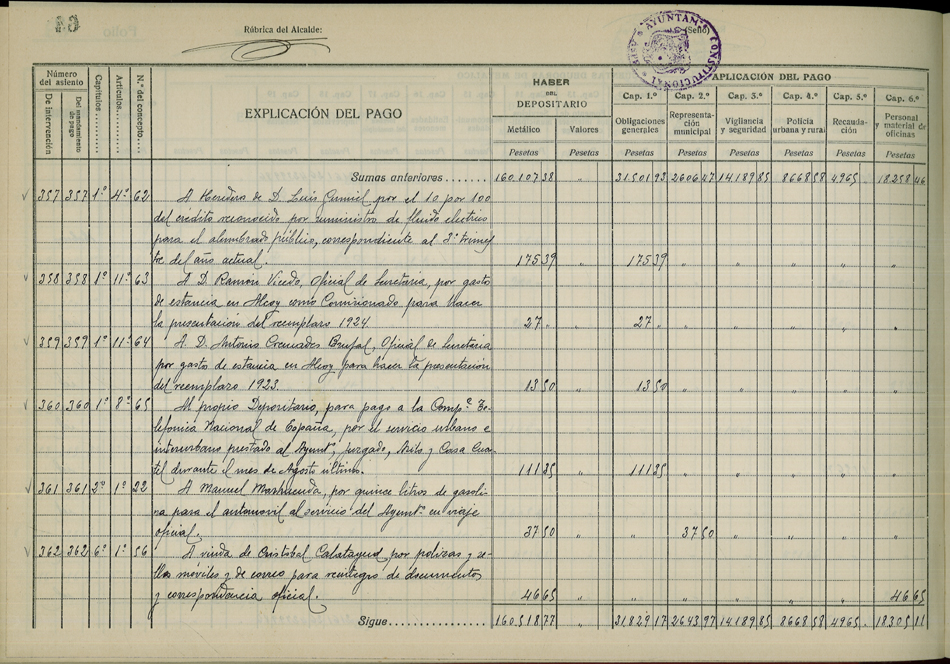 Rúbrica del Alcalde:
(Sello)
AYUNTAM
CONSTITUCIONAL
Número del asiento
De intervención
Del mandamiento de pago
Capítulos
Artículos
N.º del concepto
EXPLICACIÓN DEL PAGO
HABER DEL DEPOSITARIO
Metálico Valores
Pesetas Pesetas
APLICACIÓN DEL PAGO
Cap. 1.º Cap. 2.º Cap. 3.º Cap. 4.º Cap. 5.º Cap. 6.º
Obligaciones generales Representación municipal Vigilancia y seguridad Policía urbana y rural Recaudación Personal y material de oficinas
Pesetas Pesetas Pesetas Pesetas Pesetas Pesetas
Sumas anteriores....... 160.107 38 " 31501 93 2606 47 14189 85 8668 58 4965 . 18258 46
357 357 1º 4º 62 A Heredera de D. Luis por el 10 por 100
del crédito reconocido por suministro de fluido electrico
para el alumbrado público, correspondiente al 3º trimes
tre del año actual. 175 39 " 175 39 " " " " "
358 358 1º 11º 63 A D. Ramón Vicedo, Oficial de Secretaria, por gasto
de estancia en Alcoy como Comisionado para hacer
la presentación del reemplazo 1924. 27 " " 27 " " " " " "
359 359 1º 11º 64 A D. Antonio Cremades Oficial de Secretaria
por gasto de estancia en Alcoy para hacer la presentación
del reemplazo 1923. 13 50 " 13 50 " " " " "
360 360 1º 8º 65 Al propio Depositario, para pago a la Compª. Te-
lefonica Nacional de España, por el servicio urbano e
interurbano prestado al Ayuntº, Juzgado, y Casa Cuar
tel durante el mes de Agosto último. 111 25 " 111 25 " " " " "
361 361 2º 1º 22 A Manuel por quince litros de gasoli-
na para el automovil al servicio del Ayuntº. en viaje
oficial. 37 50 " " 37 50 " " " "
362 362 6º 1º 56 A viuda de Cristobal Calatayud por polizas y se-
llos móviles y de correo para reintegro de documentos
y correspondencia oficial. 46 65 " " " " " " 46 65
Sigue................ 160.518 77 31.829 17 2643 97 14189 85 8668 58 4965 . 18305 11